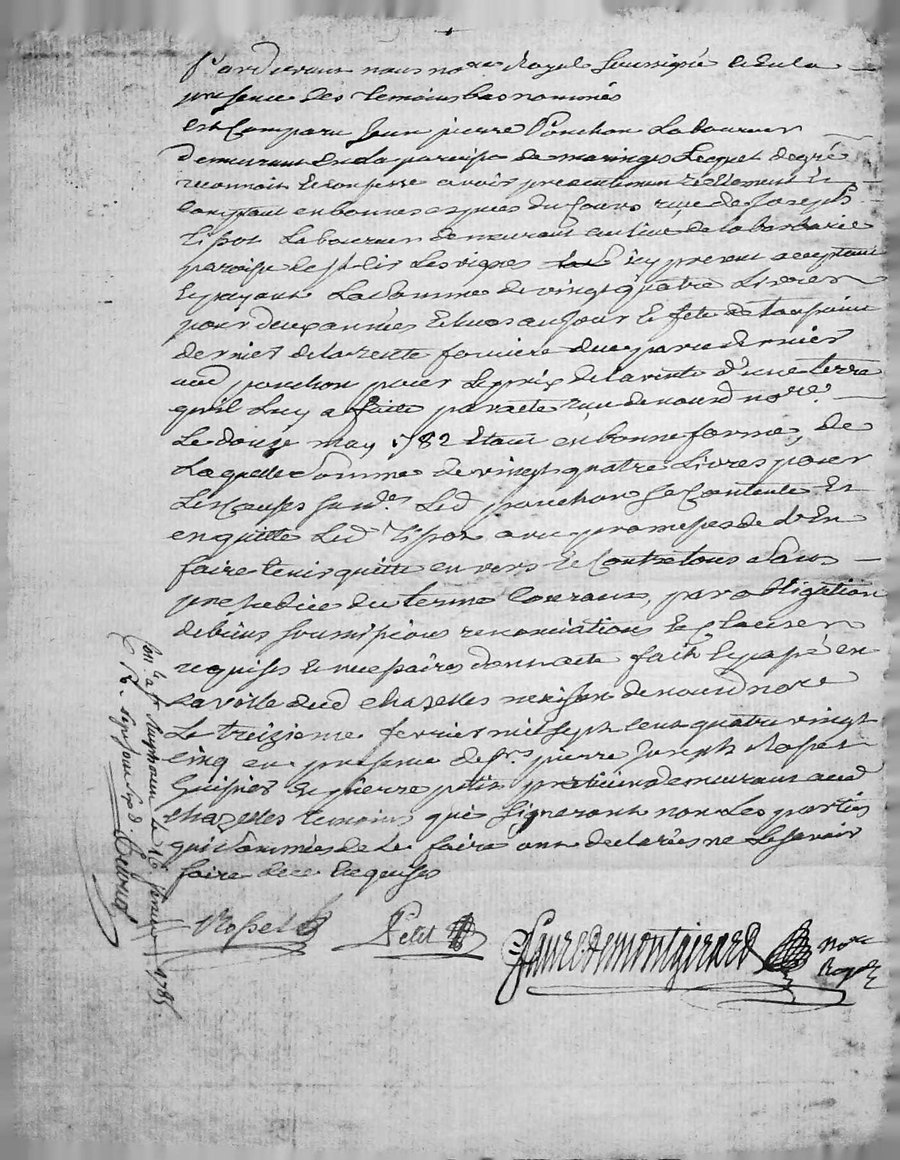 Pardevant nous no.re Royal soussigné et en la
presence des temoins bas nommés
est Comparu Jean pierre Ponchon Laboureur
demeurant En La paroisse de maringes Lequel de gré
reconnoit et confesse avoir presentement réellement et
comptant en bonnes espèces du Cours reçu de Joseph
Tisot Laboureur demeurant au lieu de la barbarie
paroisse de st Les vignes icy present acceptant
et payant La Somme de vingt quatre Livres
pour deux années Echues au Jour et fête de Toussaint
dernier de la rente fonciere due par ce dernier
aud ponchon pour Le prix de la vente d'une terre
qu'il Luy a faite par acte reçu de nousd no.re
Le douze may 1782 Etant en bonne forme, de
Laquelle Somme de vingt quatre Livres pour
Les Causes susd.es Led ponchon Se Contente Et
en quitte Led Tisot avec promesse de L'En
faire tenir quitte envers et Contre tous Sans
prejudice du terme Courant, par obligation
de biens soumissions renonciations et Clauses
requises et necessaires dont acte fait et passé en
La ville dud Chazelles maison de nousd no.re
Le treizieme fevrier mil sept Cent quatre vingt
Cinq en presence de s.rs pierre Joseph Rosset
huissier et pierre petit praticien demeurant aud
Chazelles temoins qui Signeront non Les parties
qui Sommées de Le faire ont declarées ne Le Savoir
faire de ce Enquises
Rosset Petit
Faure de montgirard no.re
Royal
Con. a st Simphorien Le 16 fevrier 1785.
R. sols